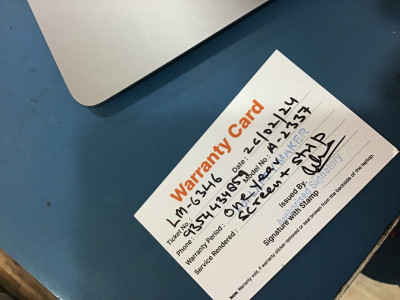 Warranty Card
Ticket No.: LM-6346 Date: 20/02/24
Phone: Model No.: A-2337
Warranty Period: One Year
Service Rendered: Screen + strip
MAKER
Issued By.
Authorised Signatory
Signature with Stamp
Note. Warranty void, if warranty sticker removed or seal broken from the backside of the laptop.